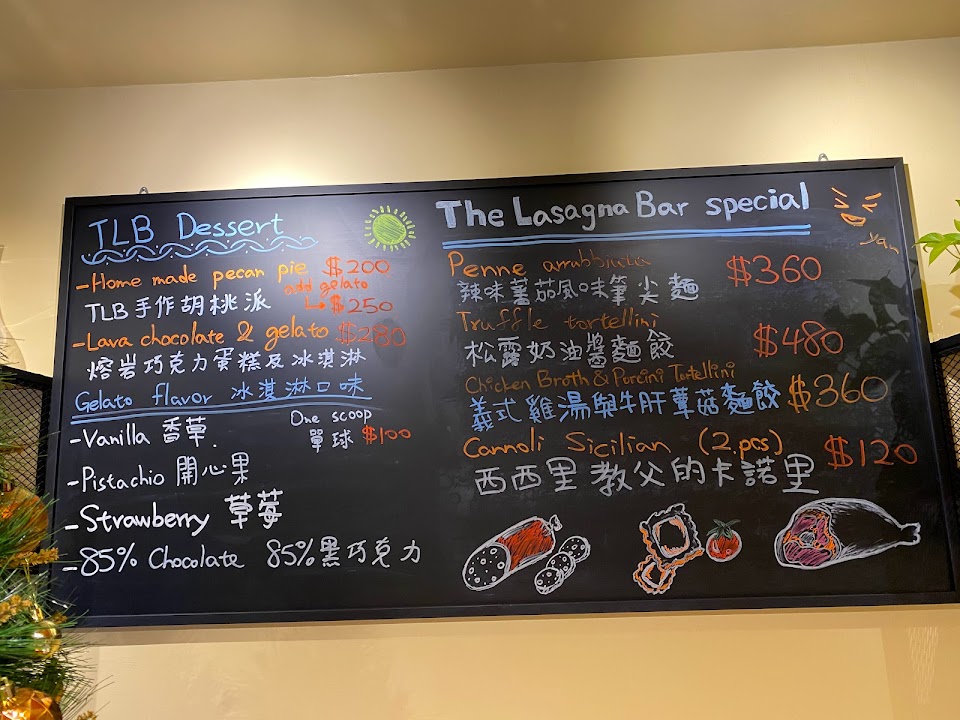 TLB Dessert
-Home made pecan pie $200
add gelato
TLB手作胡桃派 $250
-Lava chocolate & gelato $280
熔岩巧克力蛋糕及冰淇淋
Gelato flavor 冰淇淋口味
One scoop
-Vanilla 香草. 單球 $100
-Pistachio 開心果
-Strawberry 草莓
-85% Chocolate 85%黑巧克力
The Lasagna Bar special
Yan
Penne arrabbiata $360
辣味蕃茄風味筆尖麵
Truffle tortellini $480
松露奶油醬麵餃
Chicken Broth & Porcini Tortellini $360
義式雞湯與牛肝蕈菇麵餃
Cannoli Sicilian (2.pcs) $120
西西里教父的卡諾里